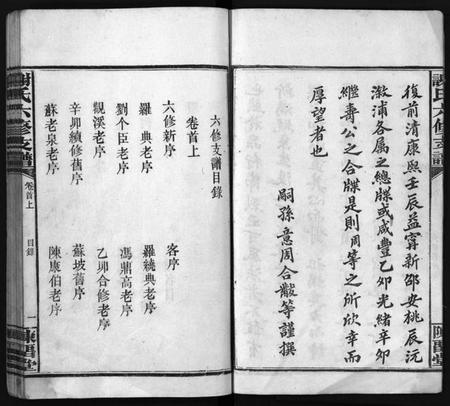 謝氏六修支譜
陳留堂
復前清康熙壬辰益寗新邵安桃辰沅
漵浦各属之總牒或咸豐乙卯光緒辛卯
繼壽公之合牒是則周等之所欣幸而
厚望者也
嗣孫意周合黻等謹撰
六修支譜目錄
卷首上
六修新序 客序
羅典老序 羅繞典老序
劉个臣老序 馮鼎高老序
觀溪老序 乙卯合修老序
辛卯續修舊序 蘇坡舊序
蘇老泉老序 陳康伯老序
謝氏六修支譜
卷首上
目錄
一
陳留堂